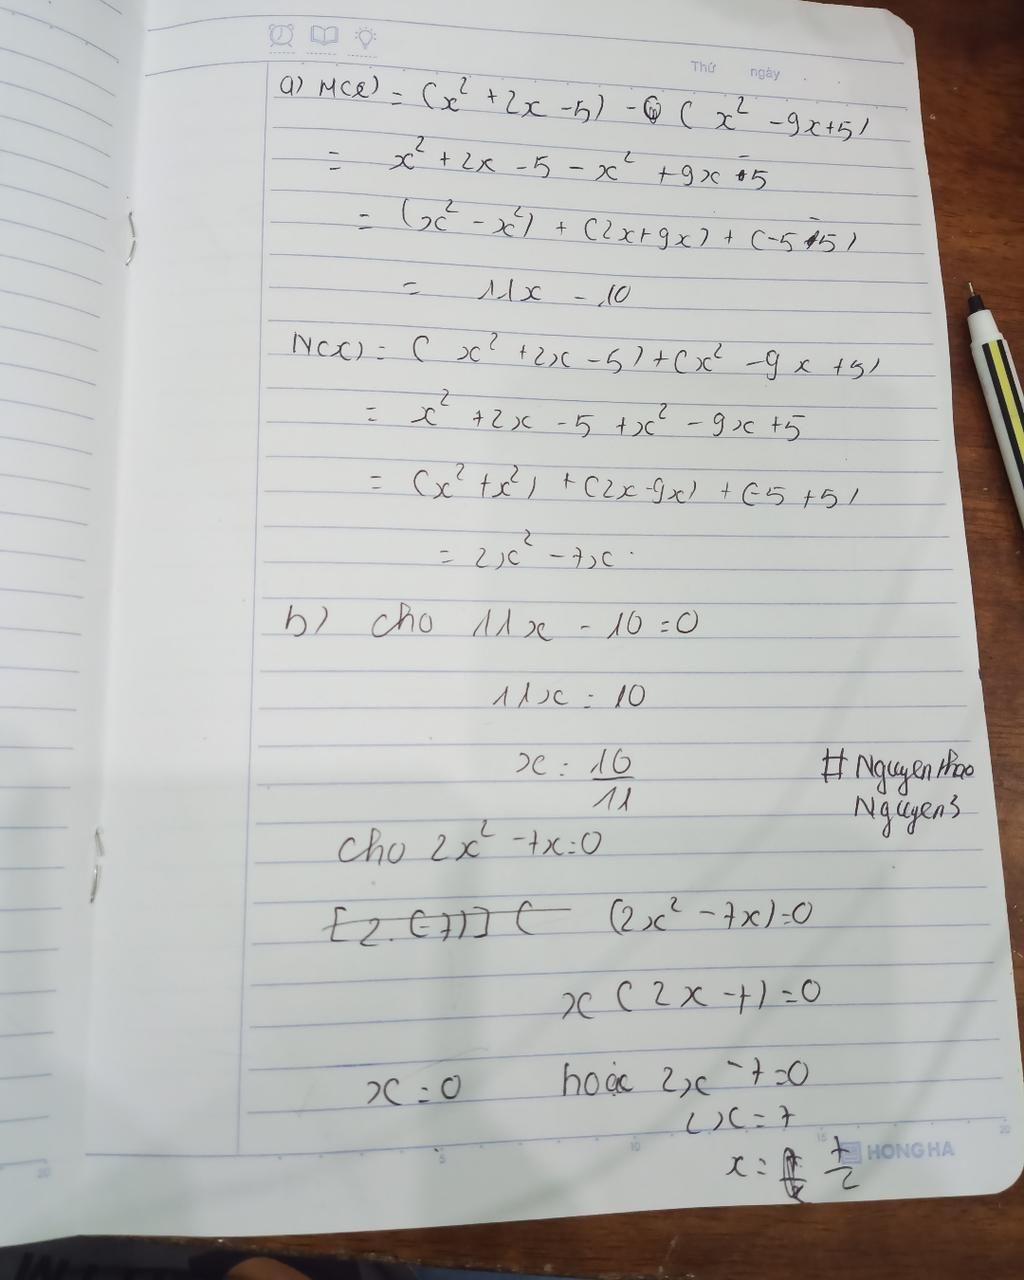 Thứ ngày
a) M(x) = (x² + 2x - 5) - (x² - 9x + 5)
= x² + 2x - 5 - x² + 9x - 5
= (x² - x²) + (2x + 9x) + (-5 - 5)
= 11x - 10
N(x) = (x² + 2x - 5) + (x² - 9x + 5)
= x² + 2x - 5 + x² - 9x + 5
= (x² + x²) + (2x - 9x) + (-5 + 5)
= 2x² - 7x
b) cho 11x - 10 = 0
11x = 10
x = 10/11
# Nguyenthao
Nguyen3
cho 2x² - 7x = 0
[2.(-7)] ( (2x² - 7x) = 0
x (2x - 7) = 0
x = 0 hoặc 2x - 7 = 0
2x = 7
x = 7/2
5 10 15 20
HONG HA
20